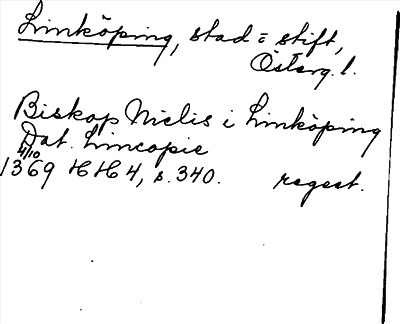 Linköping, stad = stift,
Österg. l.
Biskop Nielis i Linköping
Dat. Lincopie
4/10
1369 HH 4, s. 340. regest.